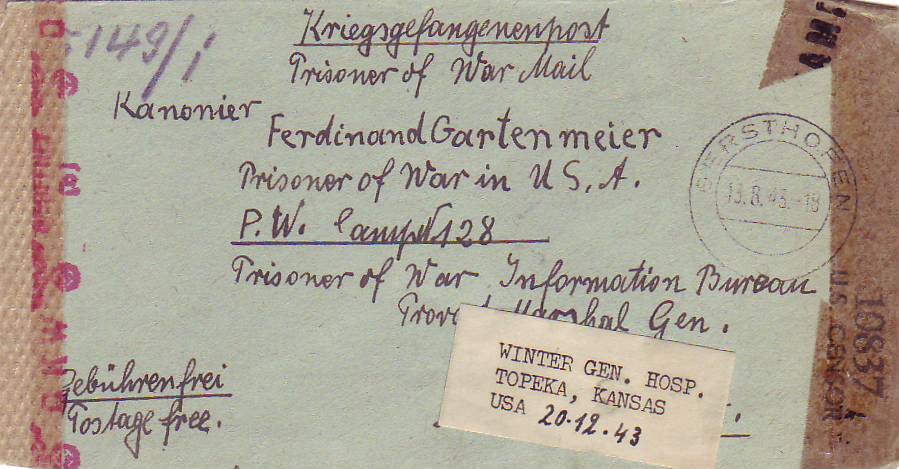 149/i
Kriegsgefangenenpost
Prisoner of War Mail
Kanonier
Ferdinand Gartenmeier
Prisoner of War in U.S.A.
P.W. Camp 128
Prisoner of War Information Bureau
Marshal Gen.
Gebührenfrei
Postage free.
WINTER GEN. HOSP.
TOPEKA, KANSAS
USA 20.12.43
GERSTHOFEN
13.8.43.-18
U.S. CENSOR
10837